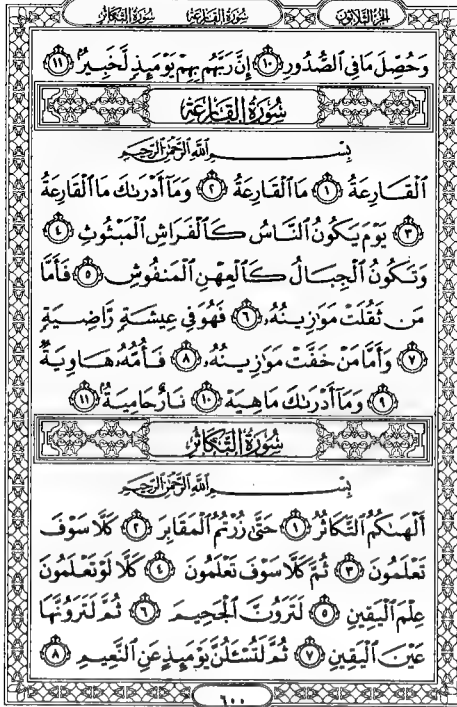 الجزء الثلاثون سورة القارعة سورة التكاثر
وَحُصِّلَ مَا فِى ٱلصُّدُورِ ۝١٠ إِنَّ رَبَّهُم بِهِمْ يَوْمَئِذٍ لَّخَبِيرٌۢ ۝١١
سُورَةُ القَارِعَةِ
بِسْمِ ٱللَّهِ ٱلرَّحْمَٰنِ ٱلرَّحِيمِ
ٱلْقَارِعَةُ ۝١ مَا ٱلْقَارِعَةُ ۝٢ وَمَآ أَدْرَىٰكَ مَا ٱلْقَارِعَةُ
۝٣ يَوْمَ يَكُونُ ٱلنَّاسُ كَٱلْفَرَاشِ ٱلْمَبْثُوثِ ۝٤
وَتَكُونُ ٱلْجِبَالُ كَٱلْعِهْنِ ٱلْمَنفُوشِ ۝٥ فَأَمَّا
مَن ثَقُلَتْ مَوَٰزِينُهُۥ ۝٦ فَهُوَ فِى عِيشَةٍ رَّاضِيَةٍ
۝٧ وَأَمَّا مَنْ خَفَّتْ مَوَٰزِينُهُۥ ۝٨ فَأُمُّهُۥ هَاوِيَةٌ
۝٩ وَمَآ أَدْرَىٰكَ مَا هِيَهْ ۝١٠ نَارٌ حَامِيَةٌۢ ۝١١
سُورَةُ التَّكَاثُرِ
بِسْمِ ٱللَّهِ ٱلرَّحْمَٰنِ ٱلرَّحِيمِ
أَلْهَىٰكُمُ ٱلتَّكَاثُرُ ۝١ حَتَّىٰ زُرْتُمُ ٱلْمَقَابِرَ ۝٢ كَلَّا سَوْفَ
تَعْلَمُونَ ۝٣ ثُمَّ كَلَّا سَوْفَ تَعْلَمُونَ ۝٤ كَلَّا لَوْ تَعْلَمُونَ
عِلْمَ ٱلْيَقِينِ ۝٥ لَتَرَوُنَّ ٱلْجَحِيمَ ۝٦ ثُمَّ لَتَرَوُنَّهَا
عَيْنَ ٱلْيَقِينِ ۝٧ ثُمَّ لَتُسْـَٔلُنَّ يَوْمَئِذٍ عَنِ ٱلنَّعِيمِ ۝٨
٦٠٠